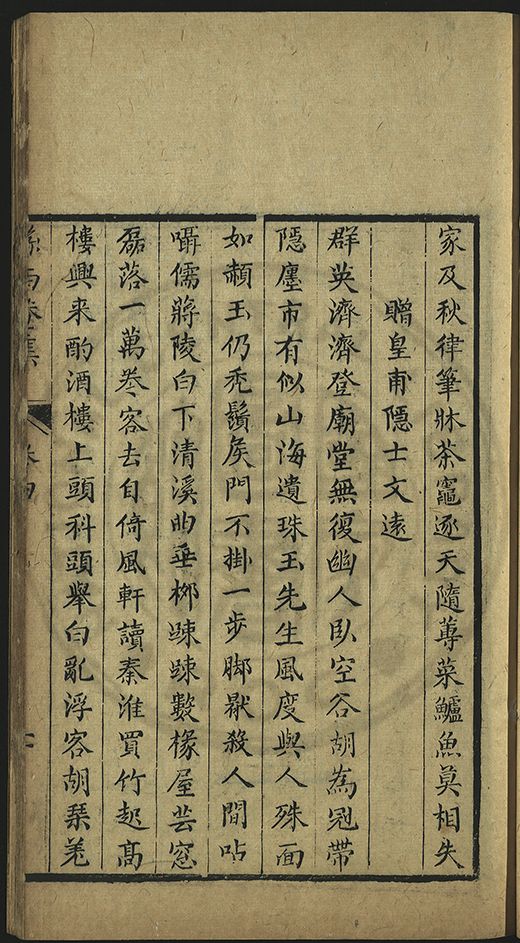 家及秋律筆牀茶竈逐天隨蓴菜鱸魚莫相失
贈皇甫隱士文遠
群英濟濟登廟堂無復幽人臥空谷胡為冠帶
隱廛市有似山海遺珠玉先生風度與人殊面
如赬玉仍禿鬚矦門不掛一步脚猒殺人間呫
囁儒蔣陵白下清溪曲垂栁踈踈數椽屋芸窓
磊落一萬卷客去自倚風軒讀秦淮買竹起高
樓興来酌酒樓上頭科頭舉白亂浮客胡琴羌
卷四